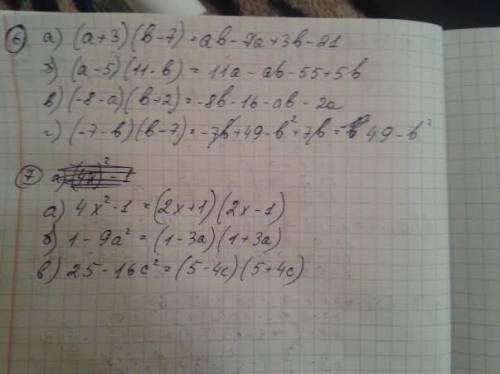 6 а) (a+3)(b-7)=ab-7a+3b-21
б) (a-5)(11-b)=11a-ab-55+5b
в) (-8-a)(b+2)=-8b-16-ab-2a
г) (-7-b)(b-7)=-7b+49-b²+7b=49-b²
7 а)
а) 4x²-1=(2x+1)(2x-1)
б) 1-9a²=(1-3a)(1+3a)
в) 25-16c²=(5-4c)(5+4c)